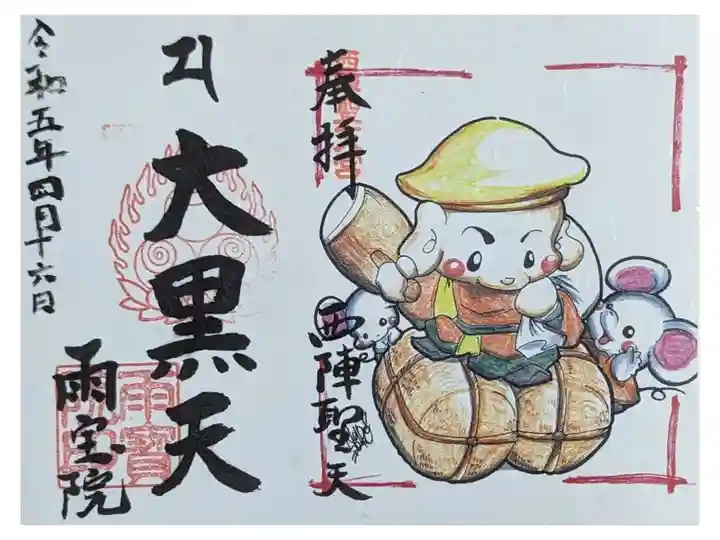 奉拝
西陣聖天
大黒天
雨宝院
令和五年四月十六日
雨寳